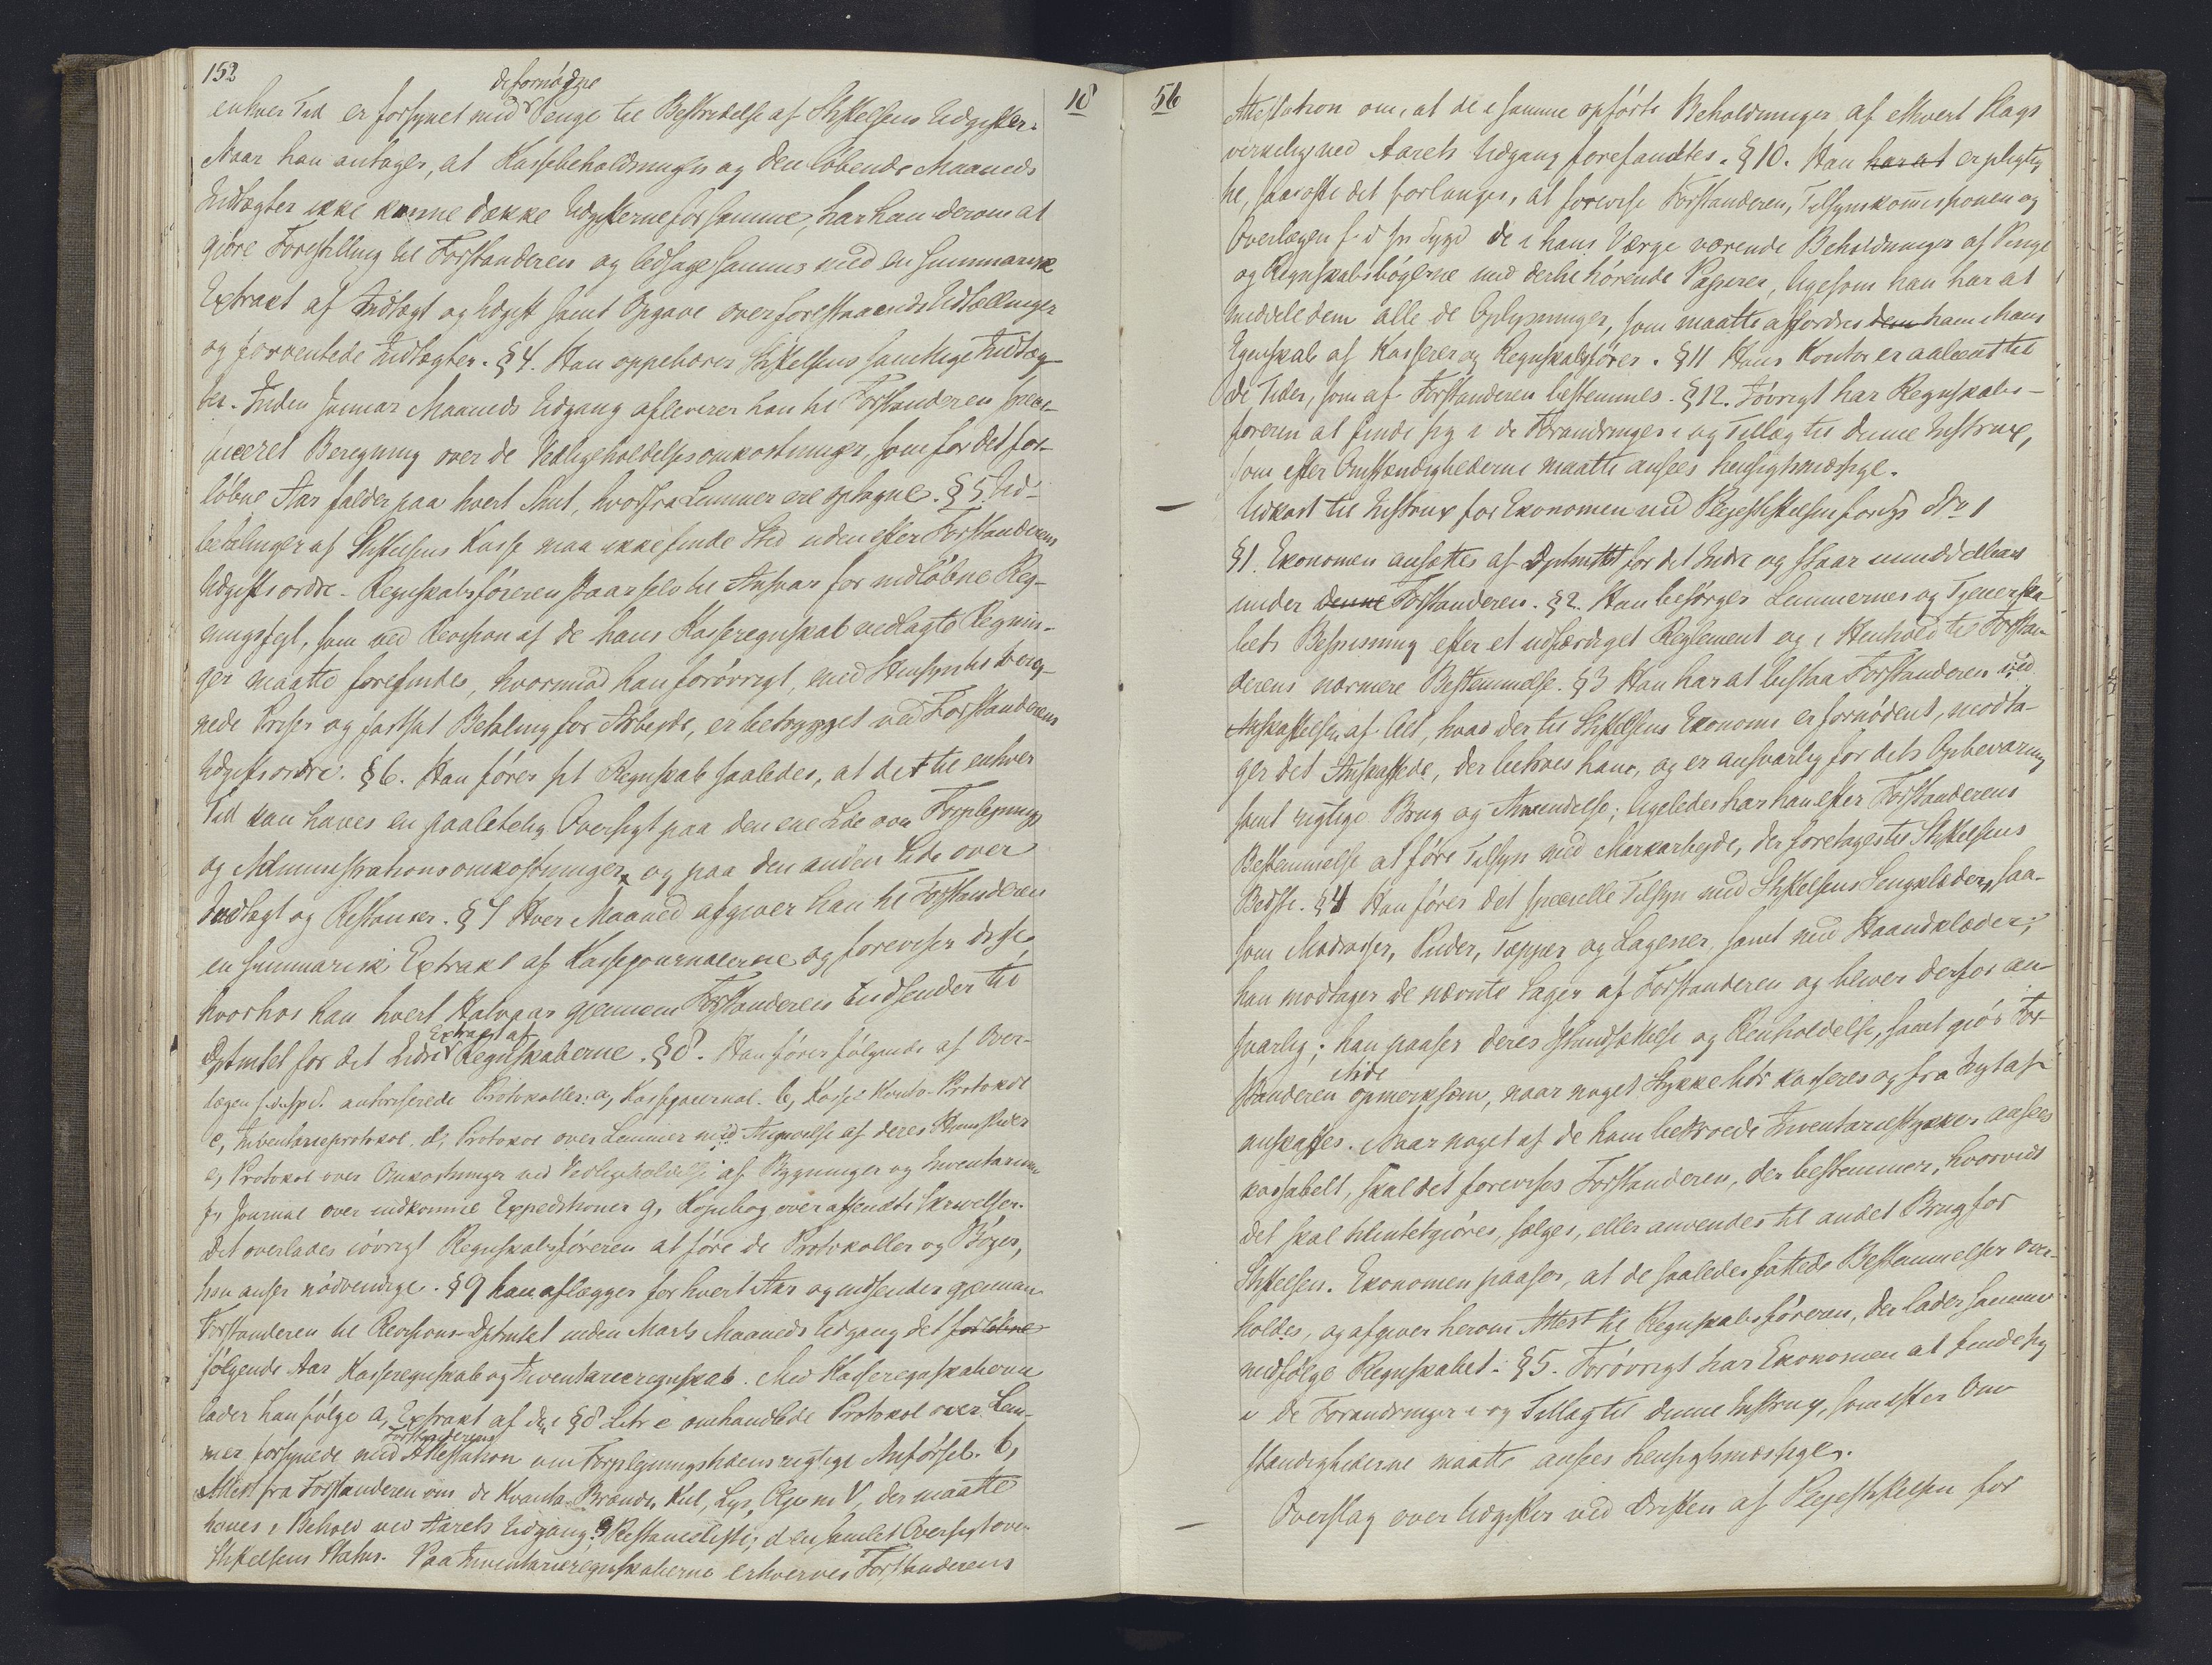 152
18
de fornødne
enhver Tid er forsynet med Penge til Bestridelse af Stiftelsens Udgifter.
Naar han antager, at Kassebeholdningen og den løbende Maaneds
Indtægter ikke kunne dække Udgifterne for samme, har han derom at
gjøre Forestilling til Forstanderen og ledsage samme med en summarisk
Extrakt af Indtægt og Udgift samt Opgave over forestaaende Udtællinger
og forventede Indtægter. § 4. Han oppebærer Stiftelsens samtlige Indtæg-
ter. Inden Januar Maaneds Udgang afleverer han til Forstanderen speci-
ficeret Beregning over de Vedligeholdelsesomkostninger, som for det for-
løbne Aar falder paa hvert Amt, hvorfra Lemmer ere optagne. § 5. Ud-
betalinger af Stiftelsens Kasse maa ikke finde Sted uden efter Forstanderens
Udgiftsordre. Regnskabsføreren staar selv til Ansvar for indløbne Reg-
ningsfejl, som ved Revision af de hans Kasseregnskab vedlagte Regnin-
ger maatte forefindes, hvorimod han forøvrigt, med Hensyn til bereg-
nede Priser og fastsat Betaling for Arbejde, er betrygget ved Forstanderens
Udgiftsordre. § 6. Han fører sit Regnskab saaledes, at det til enhver
Tid kan haves en paalidelig Oversigt paa den ene Side over Forplejnings
og Administrationsomkostninger og paa den anden Side over
Indtægt og Restancer. § 7 Hver Maaned afgiver han til Forstanderen
en summarisk Extrakt af Kassejournalerne og foreviser disse,
hvorhos han hvert Halvaar gjennem Forstanderen indsender til
Extrakt af
Dptmtet for det Indre Regnskaberne. § 8. Han fører følgende af Over-
lægen f. d. sp. S. autoriserede Protokoller: a, Kassejournal. b, Kasse Konto-Protokol
c, Inventarieprotokol. d, Protokol over Lemmer med Angivelse af deres Hjemsteder
e, Protokol over Omkostninger ved Vedligeholdelse af Bygninger og Inventarium
f, Journal over indkomne Expeditioner g, Kopibog over afsendte Skrivelser.
Det overlades iøvrigt Regnskabsføreren at føre de Protokoller og Bøger,
han anser nødvendige. § 9 han aflægger for hvert Aar og indsender gjennem
Forstanderen til Revisions-Dptmtet inden Marts Maaneds Udgang det forløbne
følgende Aar Kasseregnskab og Inventarieregnskab. Med Kasseregnskaberne
lader han følge a, Extrakt af den i § 8 Litr e omhandlede Protokol over Lem-
Forstanderens
mer forsynede med Attestation om Forplejningstidens rigtige Anførsel. b,
Attest fra Forstanderen om de Kvanta Brænde, Kul, Lys, Olje m V, der maatte
haves i Behold ved Aarets Udgang. c, Restanceliste; d en samlet Oversigt over
Stiftelsens Status. Paa Inventarieregnskaberne erhverves Forstanderens
56
Attestation om, at de i samme opførte Beholdninger af ethvert Slags
virkelig ved Aarets Udgang forefandtes. § 10. Han har at er pligtig
til, saa ofte det forlanges, at forevise Forstanderen, Tilsynskommissionen og
Overlægen f. d sp. Sygd de i hans Værge værende Beholdninger af Penge
og Regnskabsbøgerne med dertil hørende Papirer, ligesom han har at
meddele dem alle de Oplysninger, som maatte affordres dem ham i hans
Egenskab af Kasserer og Regnskabsfører. § 11 Hans Kontor er aabent til
de Tider, som af Forstanderen bestemmes. § 12. Iøvrigt har Regnskabs-
føreren at finde sig i de Forandringer i og Tillæg til denne Instrux,
som efter Omstændighederne maatte ansees hensigtsmæssige.
Udkast til Instrux for Ekonomen ved Plejestiftelsen for sp S No 1
§ 1. Ekonomen ansættes af Dptmtet for det Indre og staar umiddelbart
under denne Forstanderen. § 2. Han besørger Lemmernes og Tjenerska-
bets Bespisning efter et udfærdiget Reglement og i Henhold til Forstan-
derens nærmere Bestemmelse. § 3 Han har at bistaa Forstanderen ved
Anskaffelsen af Alt, hvad der til Stiftelsens Ekonomi er fornødent, modta-
ger det Anskaffede, der betroes ham, og er ansvarlig for dets Opbevaring
samt rigtige Brug og Anvendelse; ligeledes har han efter Forstanderens
Bestemmelse at føre Tilsyn med Markarbejde, der foretages til Stiftelsens
Bedste. § 4 Han fører det specielle Tilsyn med Stiftelsens Sengklæder, saa-
som Madrasser, Puder, Tæpper og Lagener, samt med Haandklæder;
han modtager de nævnte Sager af Forstanderen og bliver derfor an-
svarlig; han paaser deres Istandsættelse og Renholdelse, samt gjør For-
standeren opmerksom, naar noget Stykke bør kasseres og fra Nyt af
anskaffes. Naar noget af de ham betroede Inventariestykker ansees
kassabelt, skal det forevises Forstanderen, der bestemmer, hvorvidt
det skal tilintetgjøres, sælges, eller anvendes til andet Brug for
Stiftelsen. Ekonomen paaser, at de saaledes fattede Bestemmelser over-
holdes, og afgiver herom Attest til Regnskabsføreren, der lader samme
medfølge Regnskabet. § 5. Forøvrigt har Ekonomen at finde sig
i de Forandringer i og Tillæg til denne Instrux, som efter Om-
stændighederne maatte ansees hensigtsmæssige.
Overslag over Udgifter ved Driften af Plejestiftelsen for